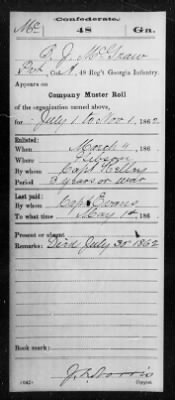 Confederate.
Mc 48 Ga.
G. J. McGraw
Pvt, Co. A, 48 Reg't Georgia Infantry.
Appears on
Company Muster Roll
of the organization named above,
for July 1 to Nov 1, 1862.
Enlisted:
When March 4, 186
Where Gibson
By whom Capt
Period 3 years or war
Last paid:
By whom Capt Evans
To what time May 1st, 186
Present or absent
Remarks: Died July 30 1862
Book mark:
(642) J. E. Norris
Copyist.